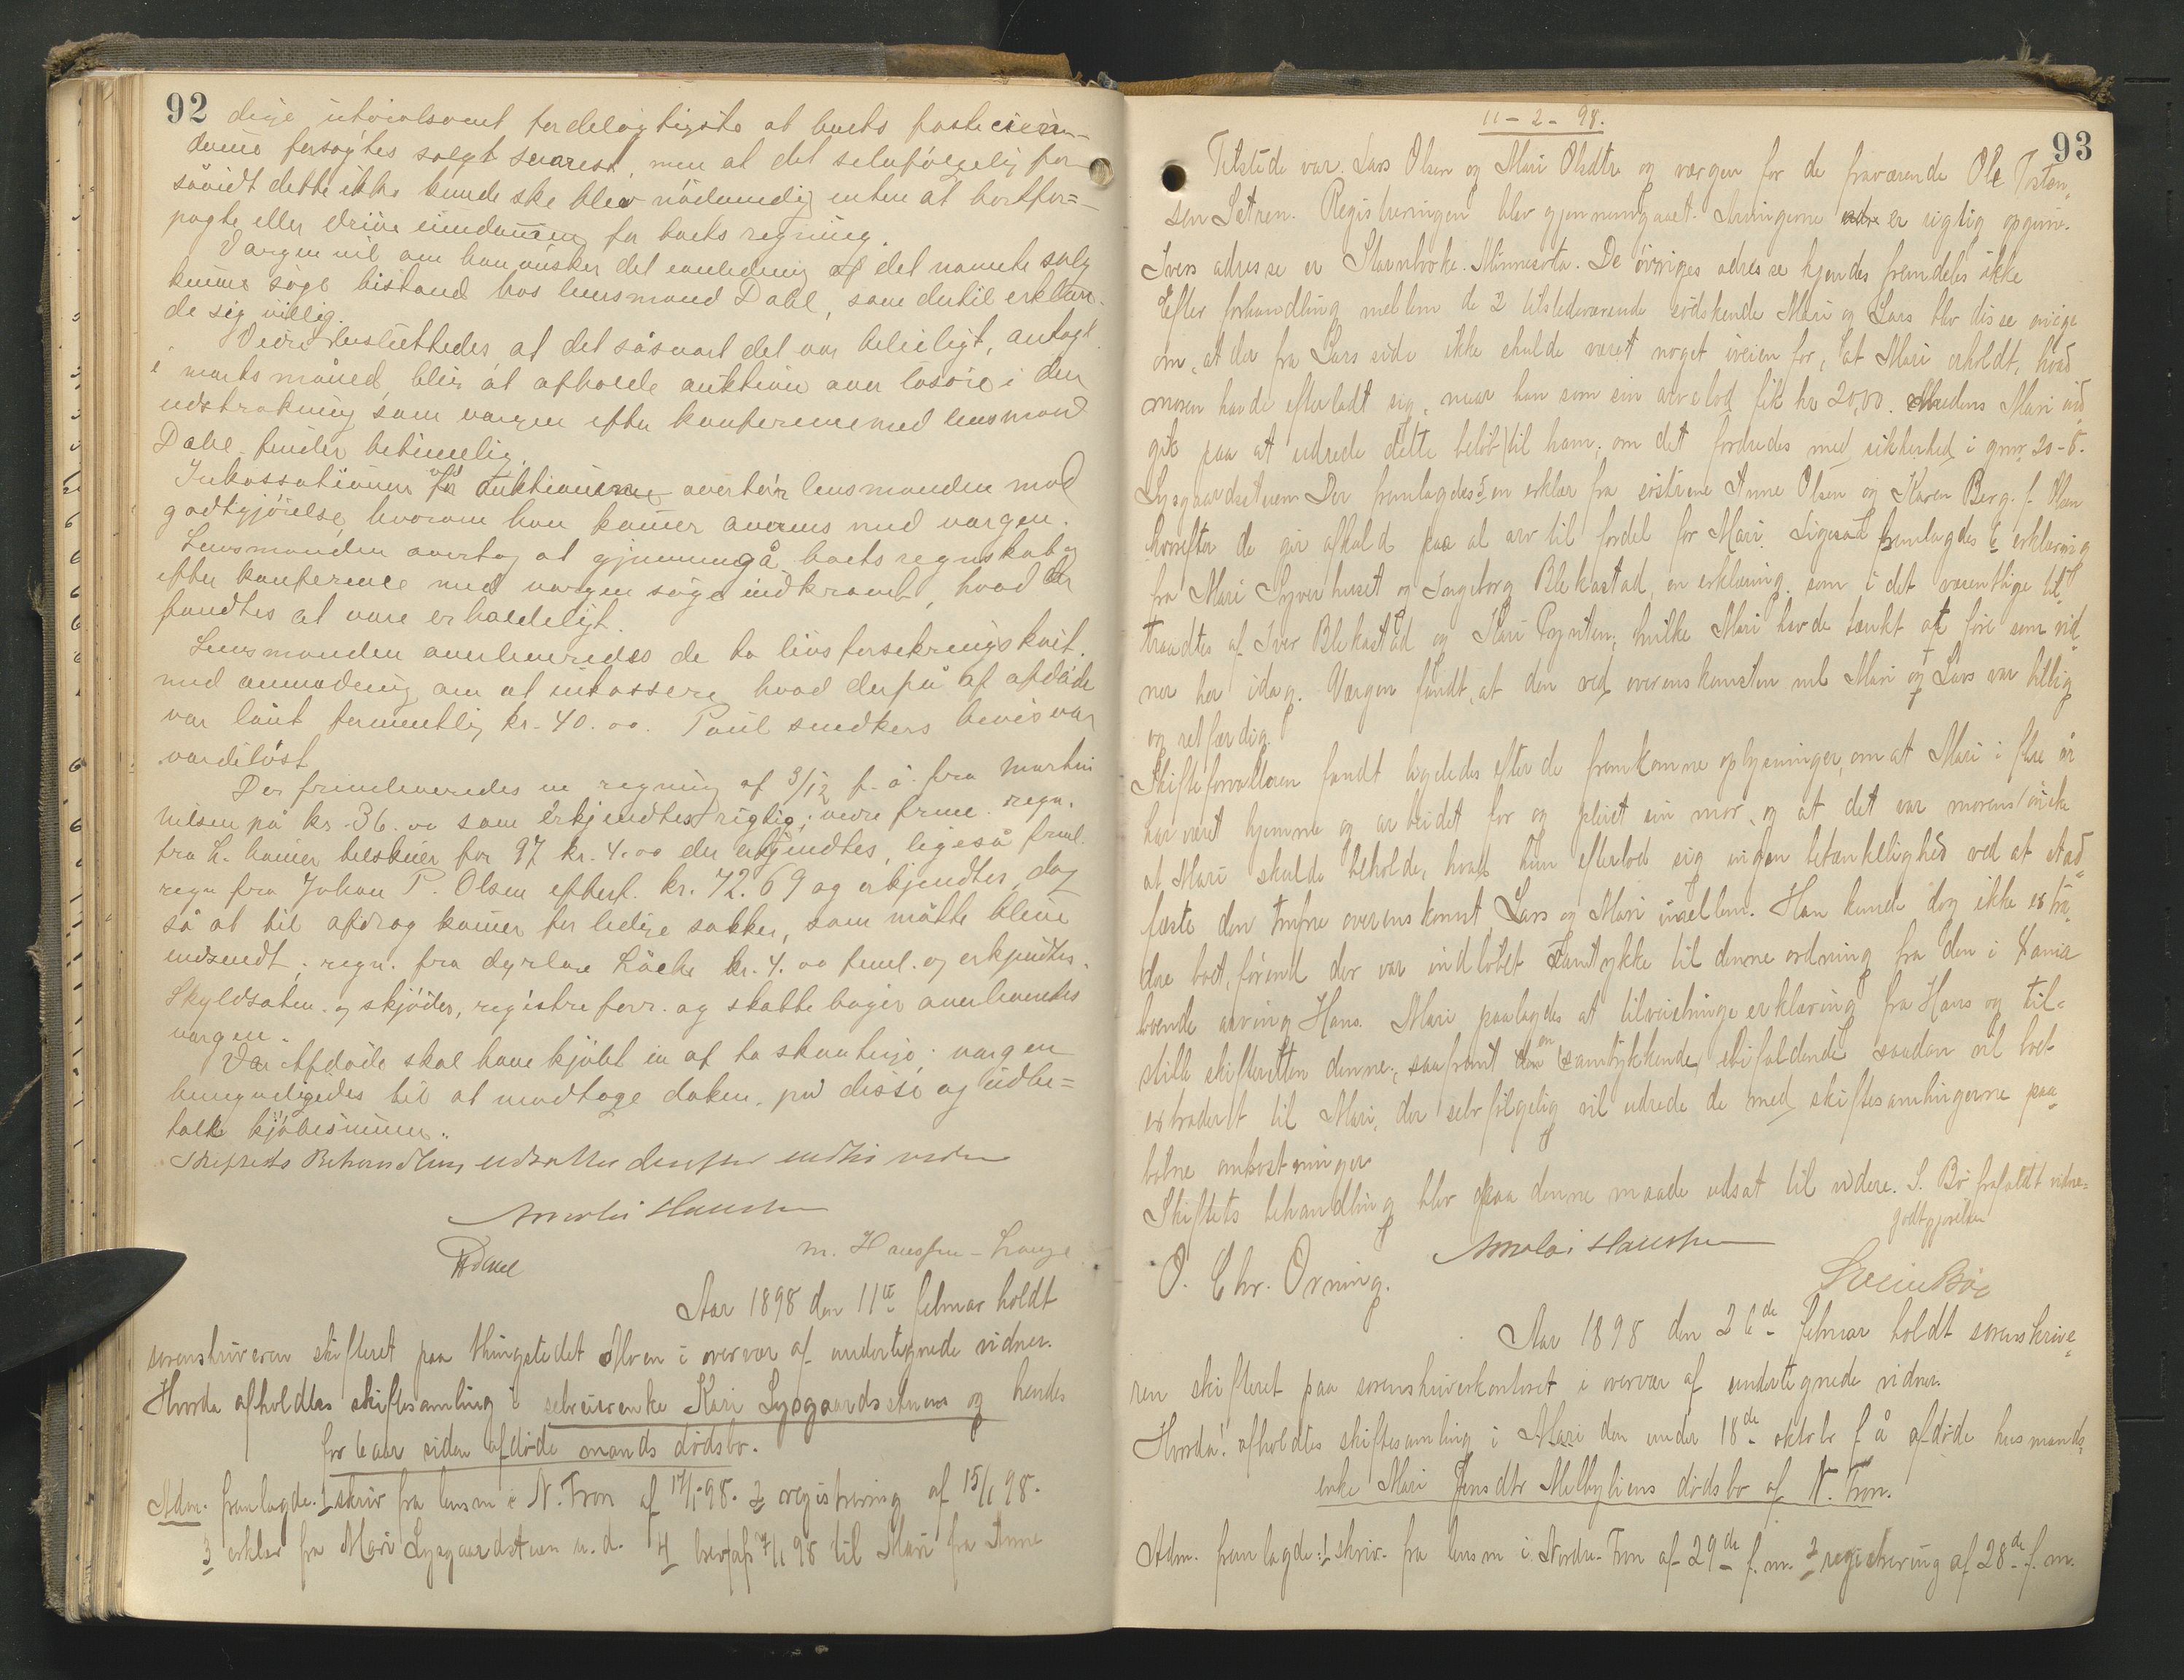 92
dige utvivlsomt fordelagtigste at boets faste eien-
domme forsøgtes solgt snarest, men at det selvfølgelig for
såvidt dette ikke kunde ske blev nødvendig enten at bortfor=
pagte eller drive eiendommen for boets regning.
Værgen vil om han ønsker det i anledning af det nævnte salg
kunne søge bistand hos lensmand Dahl, som dertil erklær-
de sig villig.
Videre besluttedes at det såsnart det var beleiligt, antagl.
i marts måned, blir at afholde auktion over løsøre i den
udstrækning som værgen efter konference med lensmand
Dahl finder betimelig.
Inkassationen ved auktionerne overtar lensmanden mod
godtgjørelse, hvorom han kommer overens med værgen.
Lensmanden overtog at gjennemgå boets regnskab og
efter konference med værgen søge indkrævet, hvad der
fandtes at være erholdeligt.
Lensmanden overleveredes de to livsforsekringskvit.
med anmodning om at inkassere hvad derpå af afdøde
var lånt formentlig kr. 40.00. Poul snedkers bevis var
værdiløst.
Der fremleveredes en regning af 3/12 f. å. fra Martin
Nilsen på kr. 36.00 som erkjendtes rigtig; videre freml. regn.
fra L. for 97 kr. 4.00 der erkjendtes, ligeså freml.
regn fra Johan P. Olsen efterf. kr. 72.69 og erkjendtes, dog
så at til afdrag kommer for ledige sækker, som måtte blive
indsendt; regn. fra dyrlæge Løcke kr. 4.00 freml. og erkjendtes.
Skyldsæten. og skjøder, registreforr. og skattebøger overleveredes
værgen.
Afdøde skal have kjøbt en af to ; værgen
bemyndigedes til at modtage dokum. på disse og udbe=
tale kjøbesummen.
Skiftets Behandling udsattes derefter indtil videre
Nicolai Hanssen
HDahl
M. Hanssen-Hauge
Aar 1898 den 11te februar holdt
sorenskriveren skifteret paa thingstedet Moen i overvær af undertegnede vidner.
Hvorda afholdtes skiftesamling i selveierenke Kari Lysgaardsstuens og hendes
for 6 aar siden afdøde mands dødsbo.
Adm. fremlagde: 1 skriv fra lensm i N. Fron af 17/1-98. 2 registrering af 15/1 98.
3 erklær fra Mari Lysgaardstuen u. d. 4 brev af 7/1 98 til Mari fra Anne
11-2-98.
93
Tilstede var Lars Olsen og Mari Olsdtr og værgen for de fraværende Ole Tosten-
sen Sætren. Registreringen blev gjennemgaaet. Arvingerne er rigtig opgivne.
Ivers adresse er Starnbroke. Minnesota. De øvriges adresse kjendes fremdeles ikke
Efter forhandling mellem de 2 tilstedeværende sødskende Mari og Lars blev disse enige
om, at der fra Lars side ikke skulde været noget iveien for, at Mari erholdt, hvad
moren havde efterladt sig, naar han som sin arvelod fik kr 20,00. Medens Mari ind
gik paa at udrede dette beløb til ham; om det fordredes med sikkerhed i gnr. 20-8.
Lysgaardstuen Der fremlagdes 5 en erklær fra søstrene Anne Olsen og Karen Berg. f. Olsen
hvorefter de gir afkald paa al arv til fordel for Mari. Ligesaa fremlagdes 6 erklæring
fra Mari Syverhuset og Ingeborg Blekastad, en erklæring som i det væsentlige til-
traadtes af Iver Blekastad og Kari Pynten; hvilke Mari havde tænkt at føre som vid-
ner her idag. Værgen fandt, at den ved overenskomsten ml Mari og Lars var billig
og retfærdig.
Skifteforvalteren fandt ligeledes efter de fremkomne oplysninger, om at Mari i flere år
har været hjemme og arbeidet for og pleiet sin mor, og at det var morens ønske
at Mari skulde beholde, hvad hun efterlod sig ingen betænkelighed ved at stad-
fæste den trufne overenskomst Lars og Mari imellem. Han kunde dog ikke extra-
dere boet, førend der var indløbet samtykke til denne ordning fra den i Xania
boende arving Hans. Mari paalagdes at tilveiebringe erklæring fra Hans og til=
stille skifteretten denne; saafremt en samtykkende saadan vil boet
extraderet til Mari, der selvfølgelig vil udrede de med skiftesamlingerne paa-
løbne omkostninger.
Skiftets behandling blev paa denne maade udsat til videre. S. Bø frafaldt vidne=
godtgjørelsen
O. Chr. Orning.
Nicolai Hanssen
Svein Bøe
Aar 1898 den 26de februar holdt sorenskrive-
ren skifteret paa sorenskriverkontoret i overvær af undertegnede vidner.
Hvorda! afholdtes skiftesamling i Mari den under 18de oktobr f. å afdøde husmands-
enke Mari Jensdtr Melbyliens dødsbo af N. Fron.
Adm. fremlagde: 1 skriv. fra lensm i Nordre-Fron af 29de f.m. 2 registrering af 28de f. m.